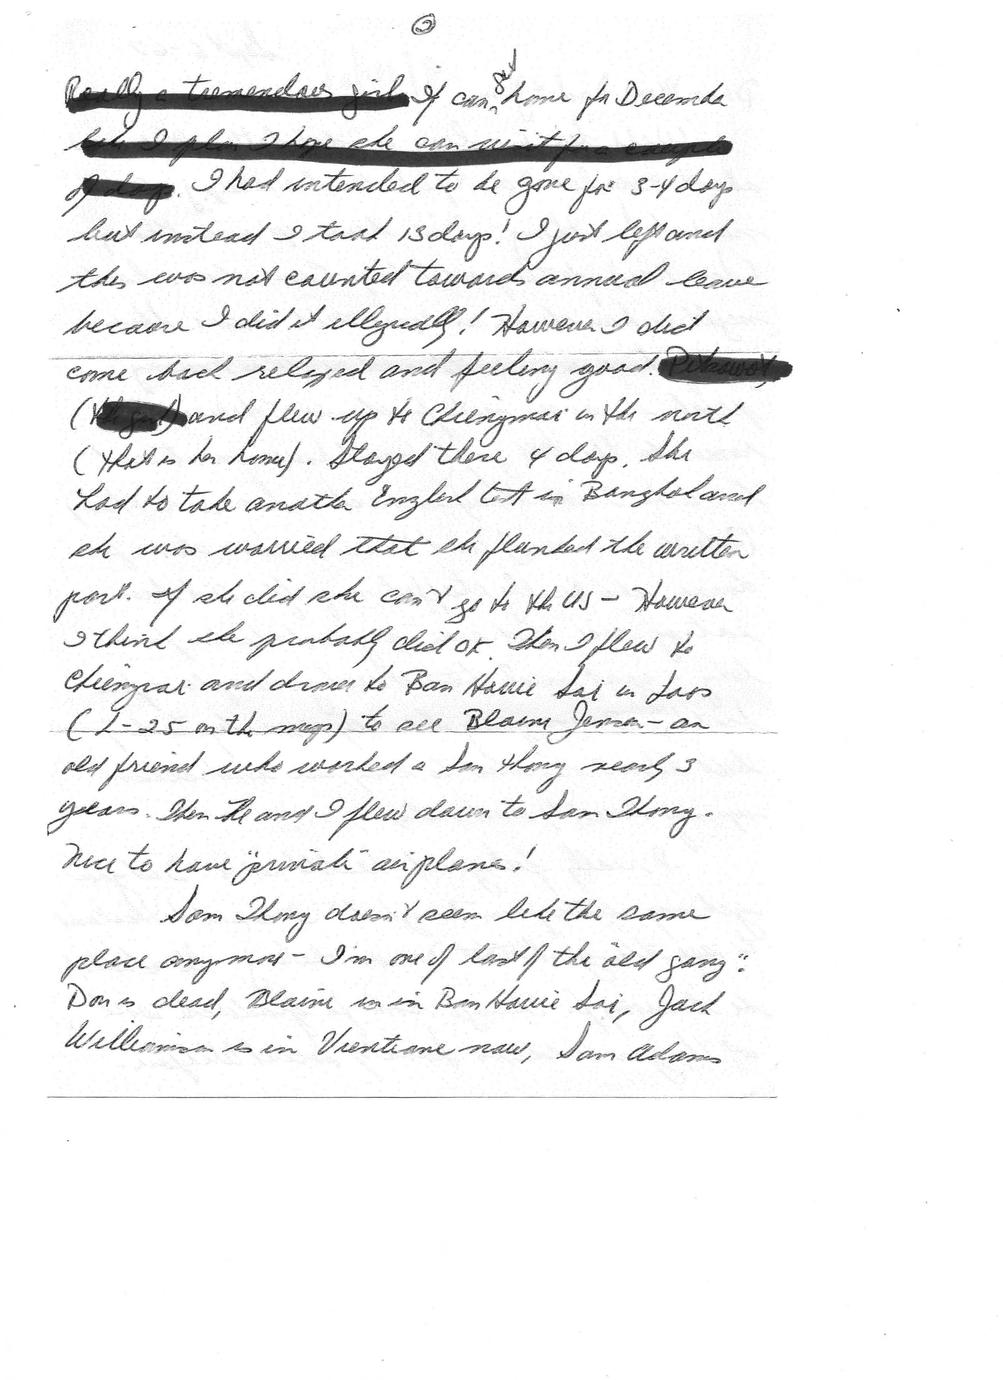 ②
Really a tremendous girl. If can get home for December
like I plan I hope she can visit for a couple
of days. I had intended to be gone for 3-4 days
but instead I took 13 days! I just left and
this was not counted towards annual leave
because I did it illegally! However I did
come back relaxed and feeling good.
(the girl) and flew up to Chiengmai in the north
(that is her home). Stayed there 4 days. She
had to take another English test in Bangkok and
she was worried that she flunked the written
part. If she did she can't go to the US - However
I think she probably did OK. Then I flew to
Chiengrai and drove to Ban Houie Sai in Laos
(L-25 on the map) to see Blaine Jensen - an
old friend who worked a Sam Thong nearly 3
years. Then He and I flew down to Sam Thong.
Nice to have "private" airplanes!
Sam Thong doesn't seem like the same
place anymore - I'm one of last of the "old gang".
Don is dead, Blaine is in Ban Houie Sai, Jack
Williamson is in Vientiane now, Sam Adams